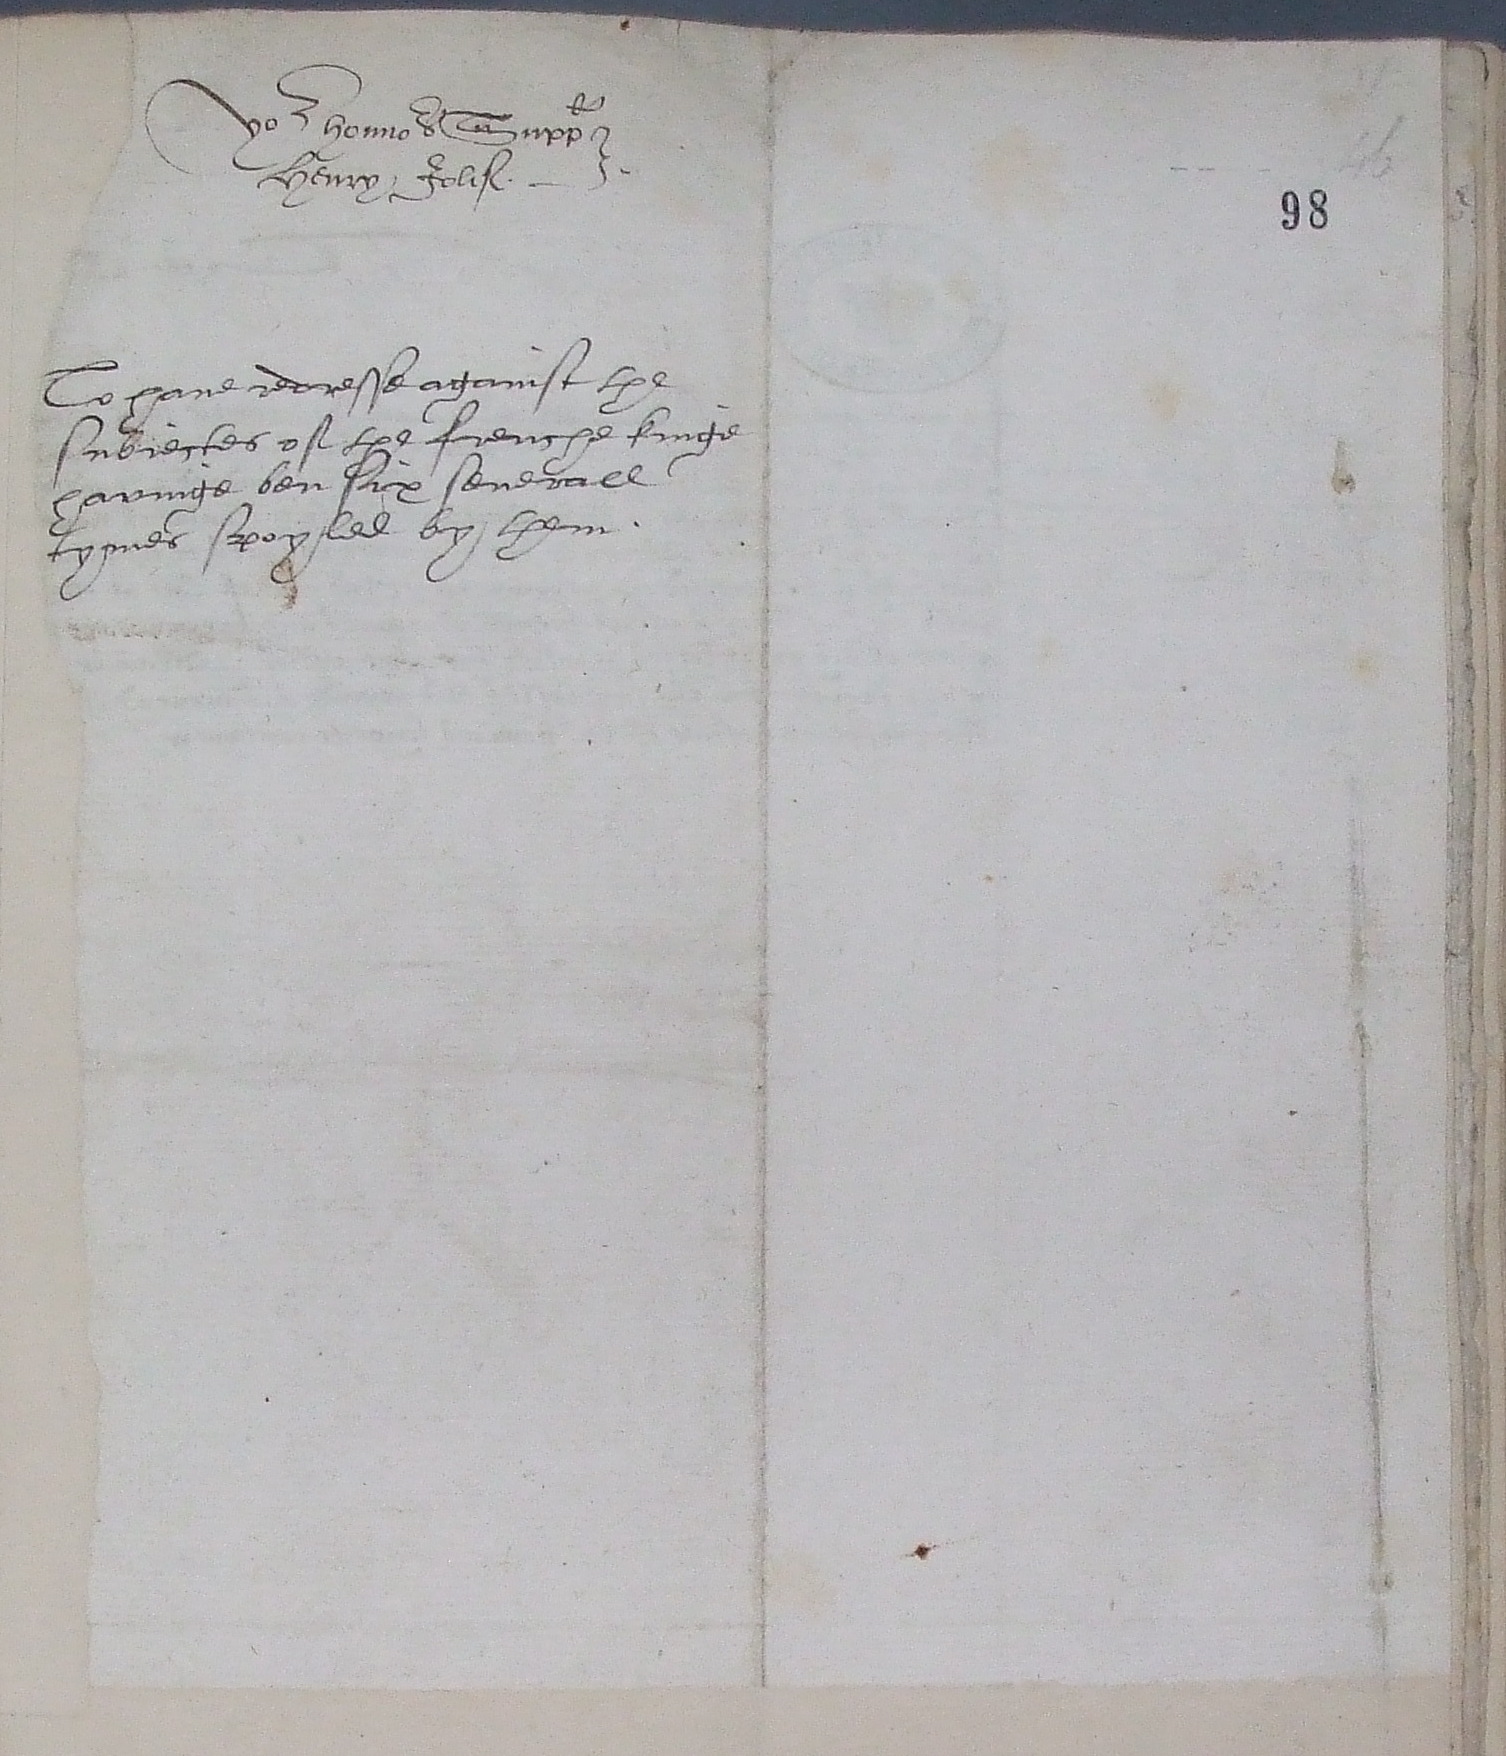 yor honnors Suppt
Henry Jolif.
98
To have redresse against the
subiectes of the frenche kinge
havinge ben six severall
tymes spoyled by them.